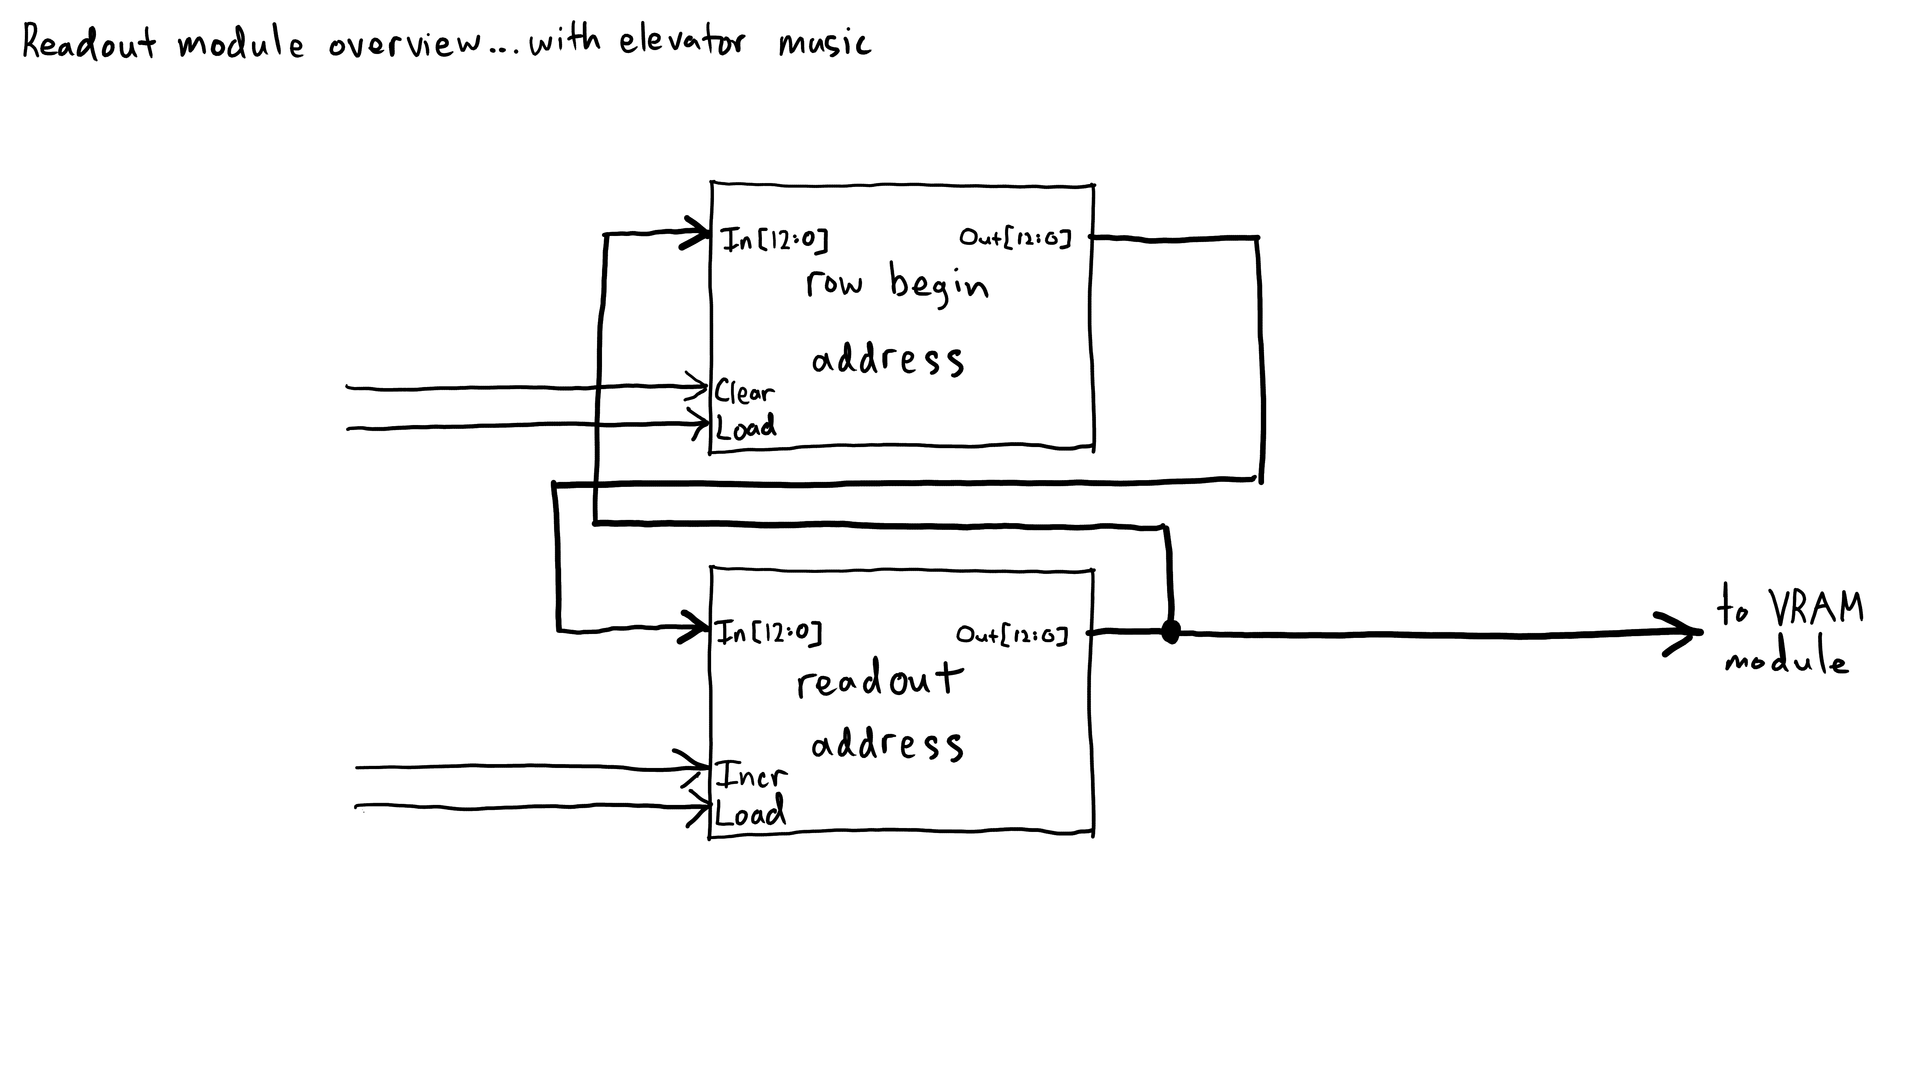 Readout module overview...with elevator music
In[12:0] Out[12:0]
row begin
address
Clear
Load
In[12:0] Out[12:0]
readout
address
Incr
Load
to VRAM
module